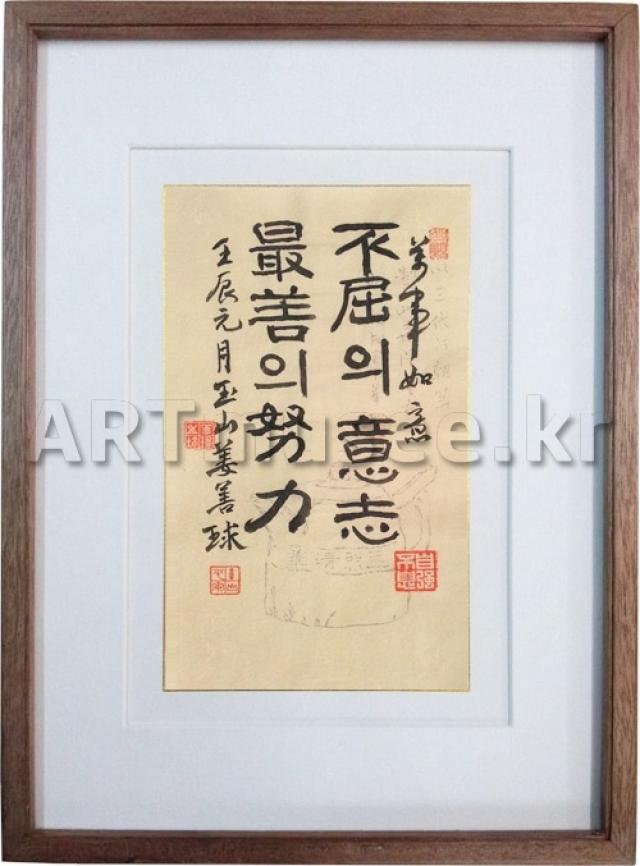 萬事如意
不屈의 意志
最善의 努力
壬辰元月玉山姜善球
自强不息
ART-musee.kr